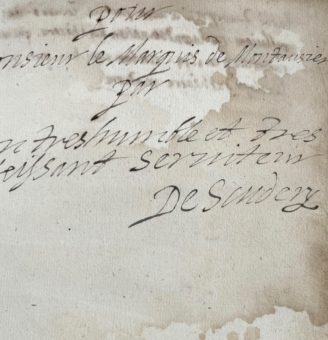 pour
onsieur le Marquis de Montausier
par
on treshumble et tres
eissant serviteur
De Scudery